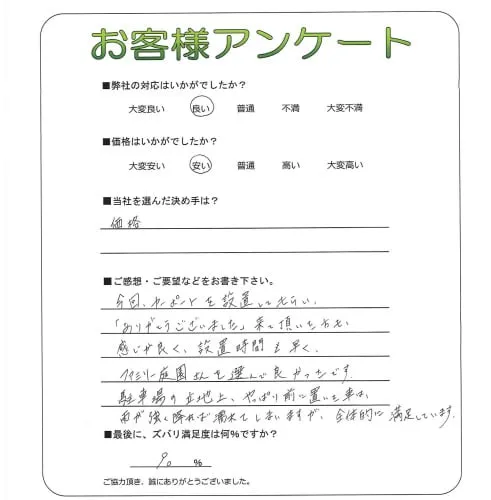 お客様アンケート
■弊社の対応はいかがでしたか?
大変良い 良い 普通 不満 大変不満
■価格はいかがでしたか?
大変安い 安い 普通 高い 大変高い
■当社を選んだ決め手は?
価格
■ご感想・ご要望などをお書き下さい。
今回、カーポートを設置してもらい、
「ありがとうございました」来て頂いた方も
感じが良く、設置時間も早く、
ファミリー庭園さんを選んで良かったです。
駐車場の立地上、やっぱり前に置いた車は、
雨が強く降れば濡れてしまいますが、全体的に満足しています。
■最後に、ズバリ満足度は何%ですか?
90 %
ご協力頂き、誠にありがとうございました。